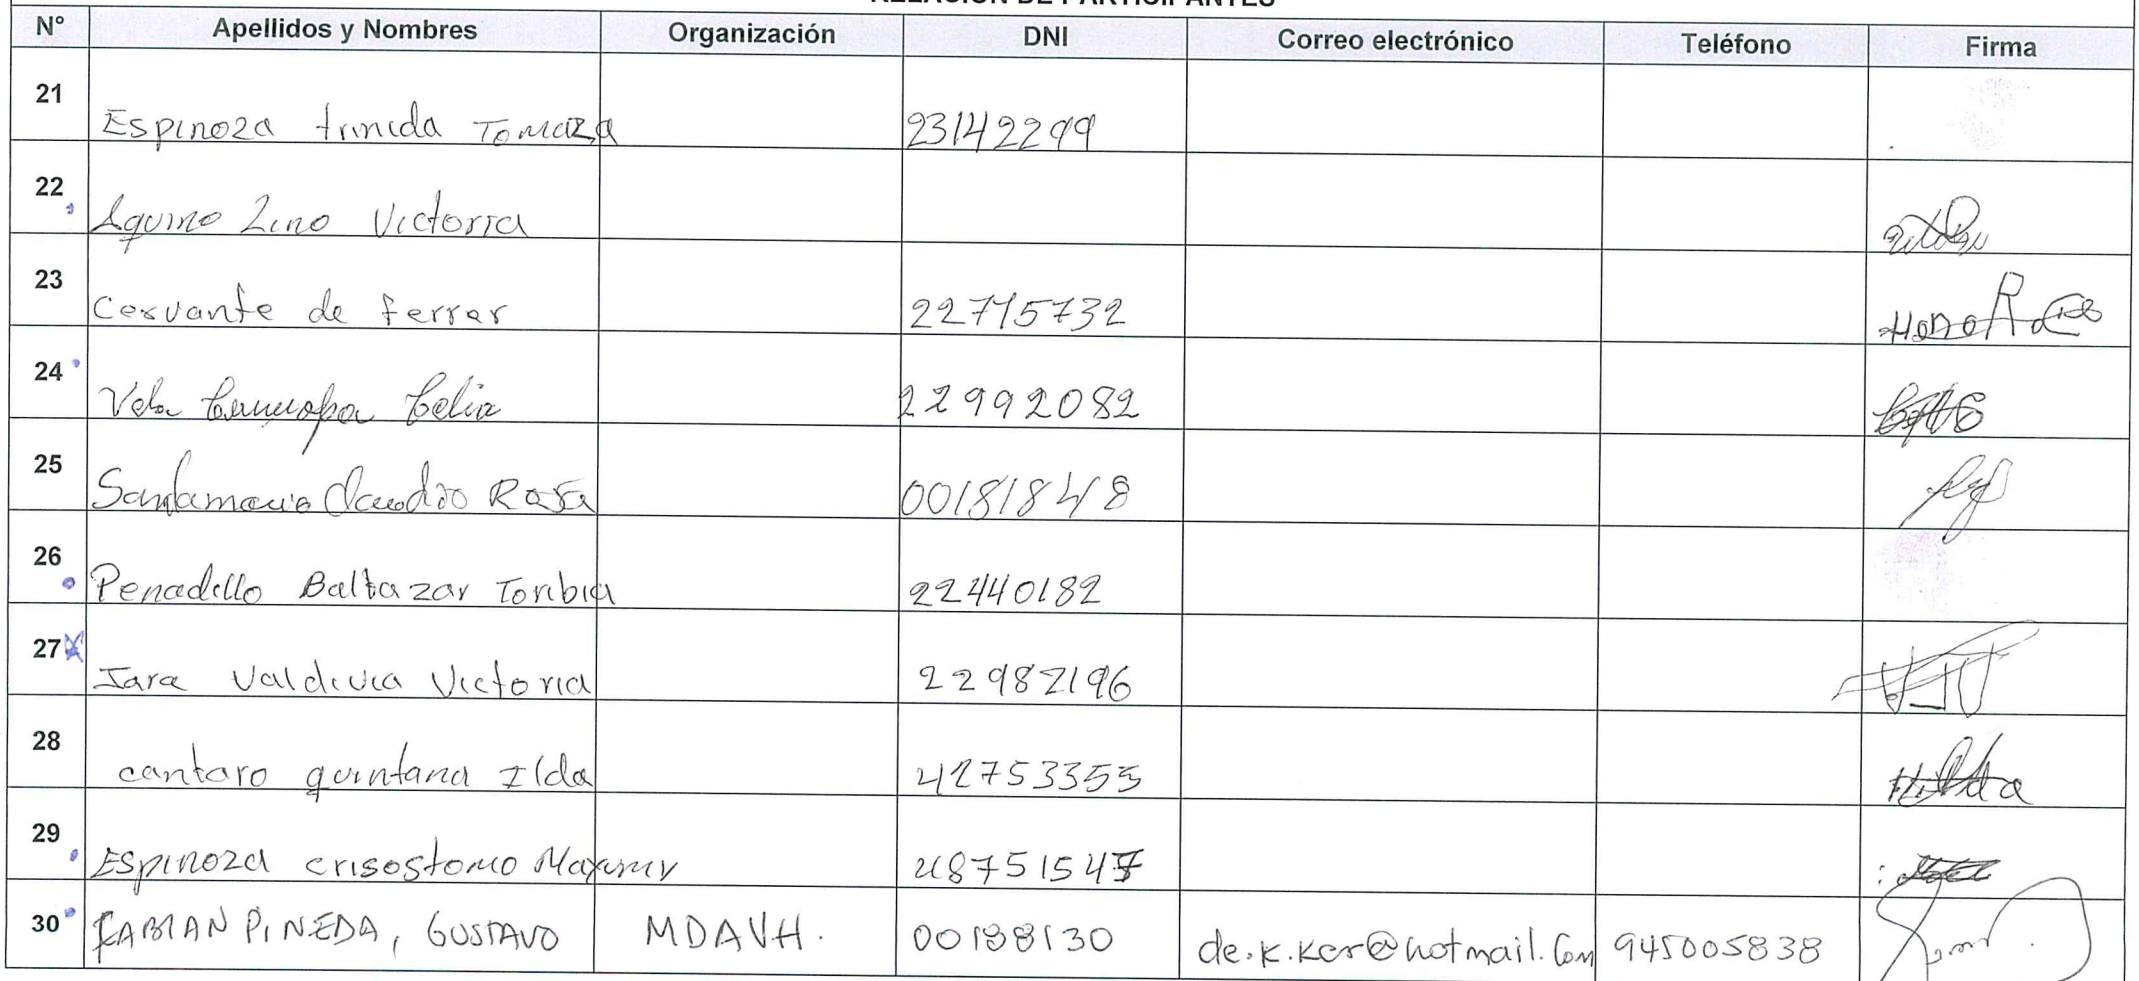 RELACIÓN DE PARTICIPANTES
N° Apellidos y Nombres Organización DNI Correo electrónico Teléfono Firma
21 Espinoza trinida Tomaza 23142299
22 Aquino Lino Victoria
23 Cervante de ferrer 22715732
24 Vela Celia 22992082
25 Santamaria Claudio Rosa 00181848
26 Penadillo Baltazar Toribia 22440182
27 Jara Valdivia Victoria 22982196
28 cantaro quintana Ilda 42753353
29 Espinoza crisostomo 48751547
30 FABIAN PINEDA, GUSTAVO MDAVH. 00188130 de.k.ker@hotmail.Com 945005838